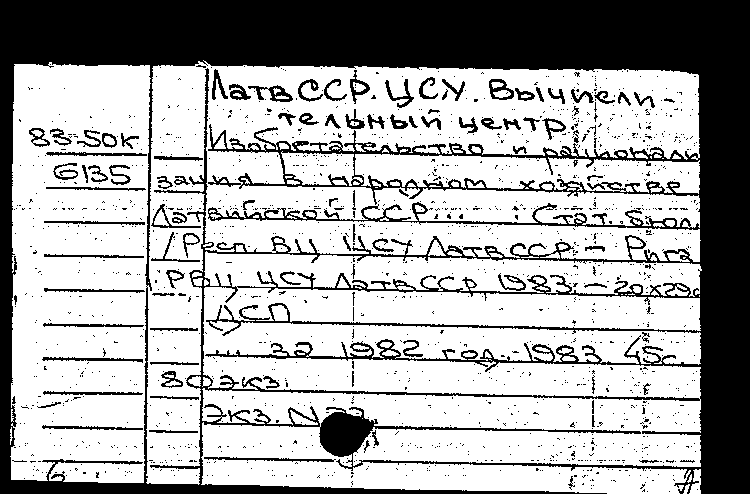 ЛатвССР. ЦСУ. Вычисли-
тельный центр.
83-50к Изобретательство и рационали
6135 зация в народном хозяйстве
Латвийской ССР... : Стат. бюл.
/Респ. ВЦ ЦСУ ЛатвССР - Рига
: РВЦ ЦСУ ЛатвССР 1983. - 20х29с
ДСП
... за 1982 год. - 1983. 45с.
80экз.
Экз. N